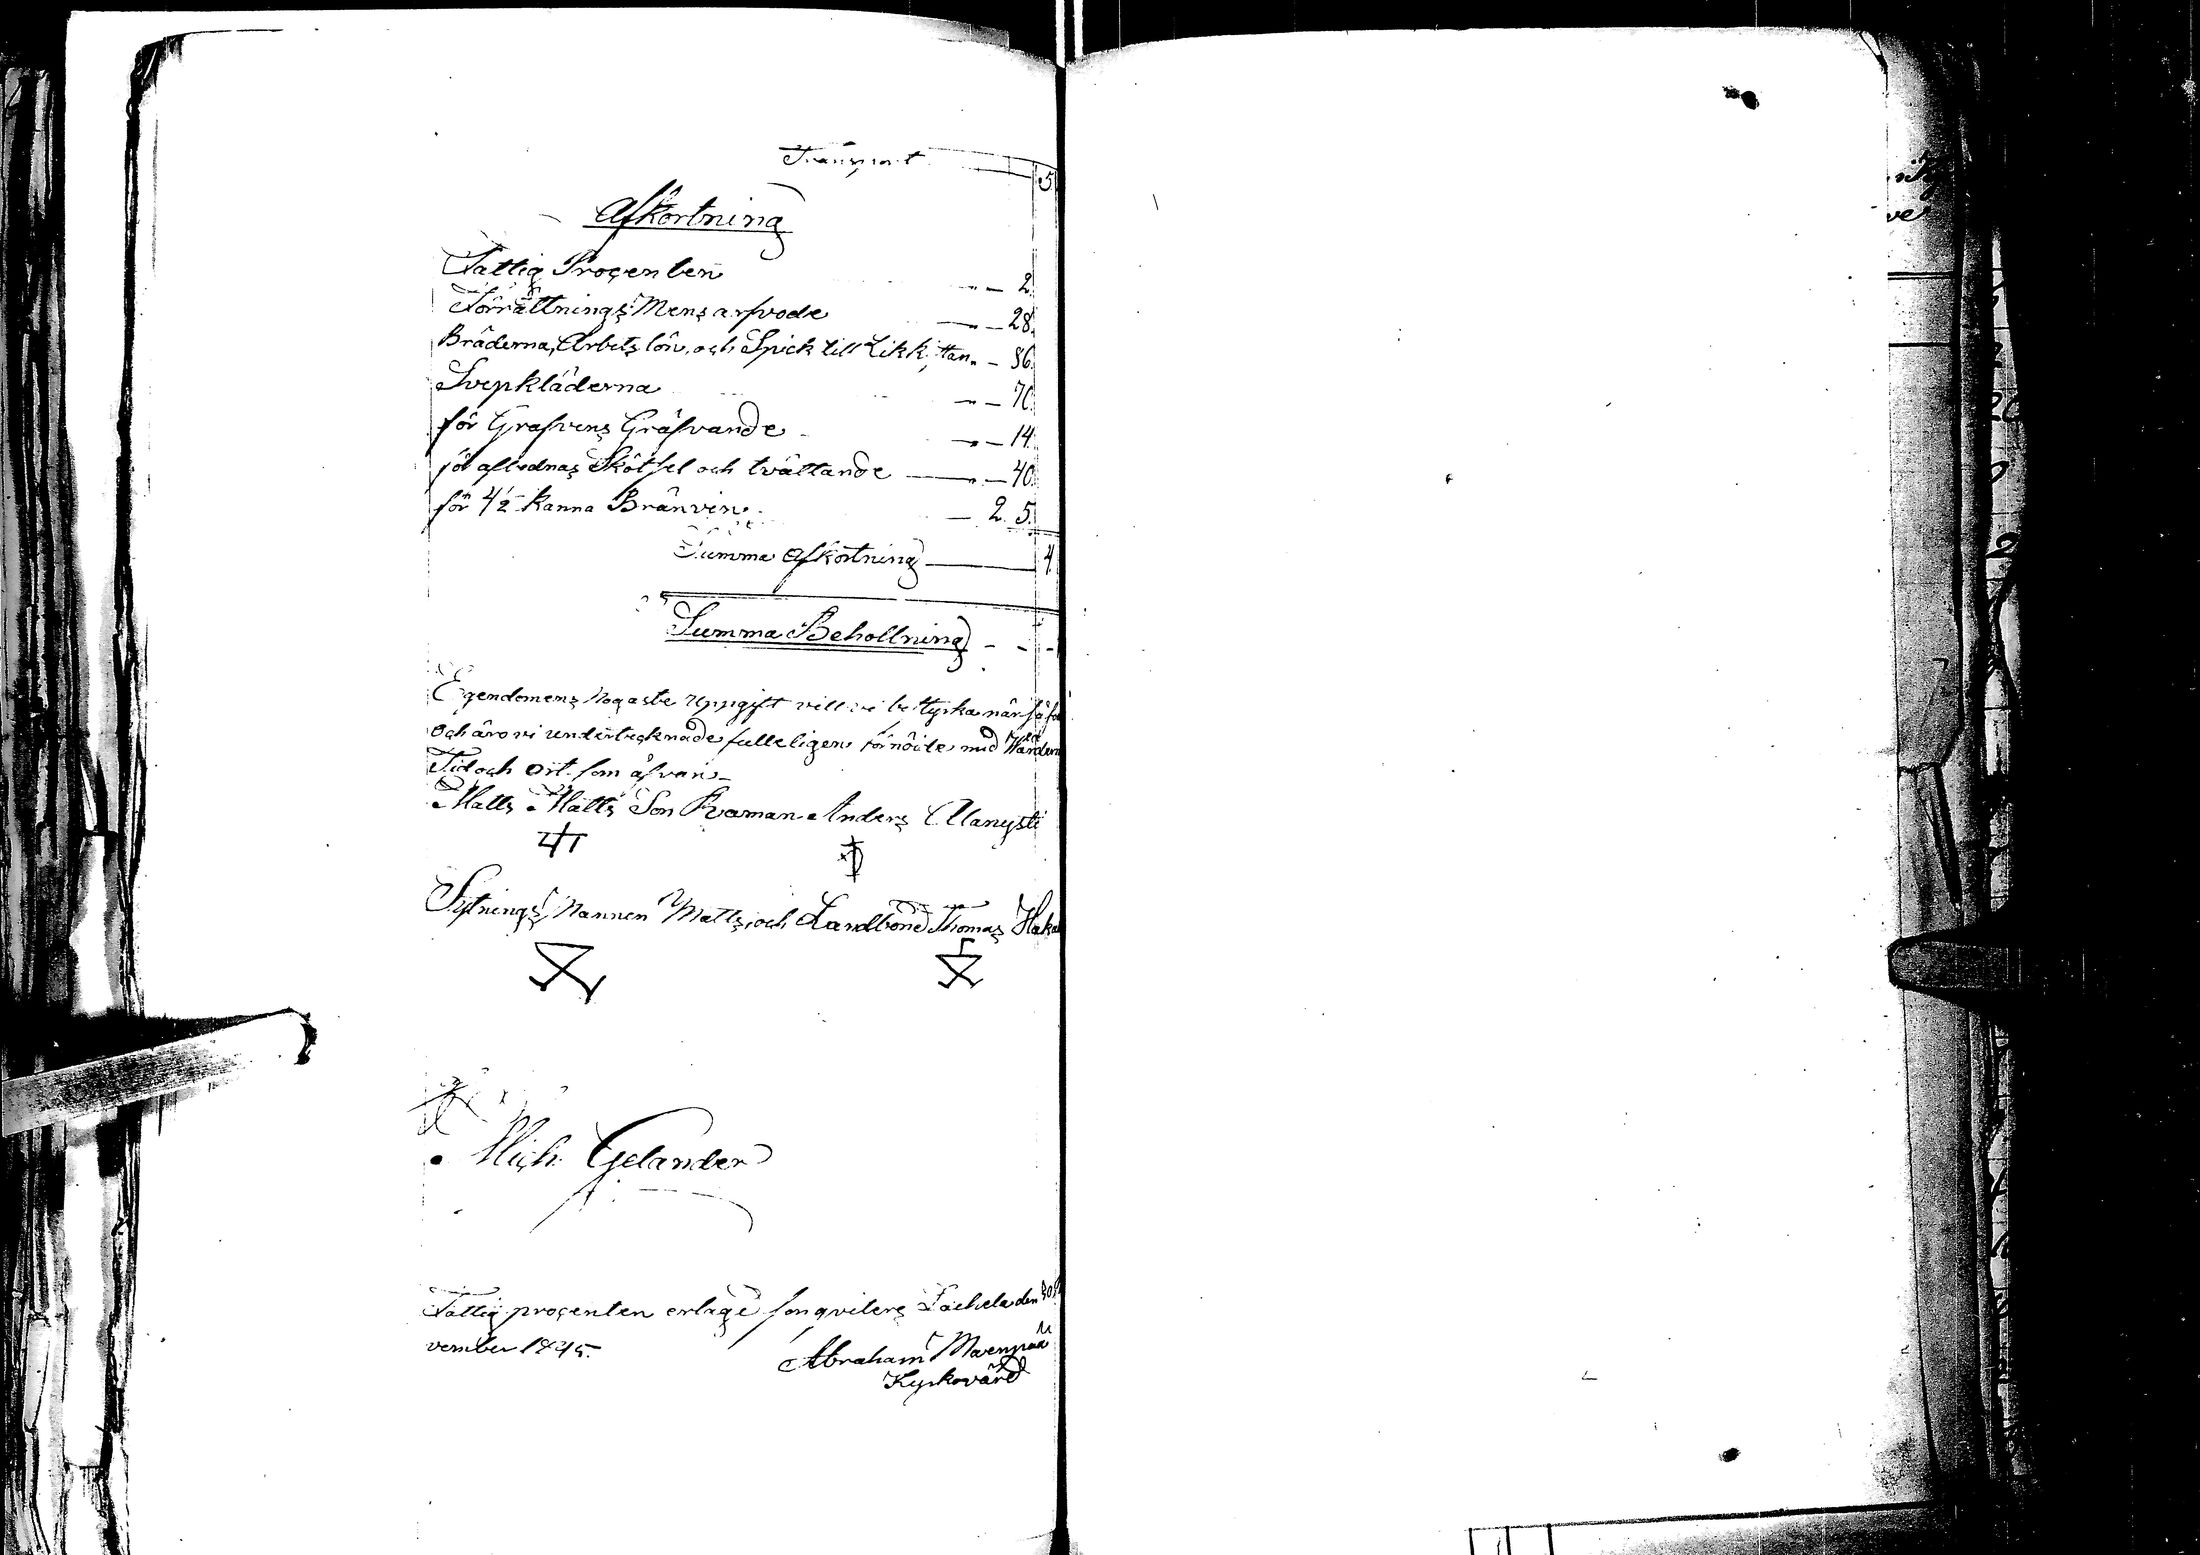 Transport 5
Afkortning
Fattig Procenten " — 2.
Förrättnings Mens arfvode — " — 28.
Bräderna, Arbets lön, och Spick till Likkistan " — 86.
Svepkläderna " — 70
för Grafvens Gräfvande " — 14.
för aflednas Skötsel och tvättande — " — 40.
för 4½ kanna Bränvin — 2. 5.
Summa Afkortning — 4.
Summa Behollning - - -
Egendomens Nogaste Uppgift vill vi bettyrka när så
och äro vi undertecknade fulleligen förnöide med
Tid och Ort som åfvan
Matts Matts Son Anders
Sytnings Mannen Matts, och Landbond Thomas
Mich. Gelander
Fattig procenten erlagd som qviteras den 30
vember 1845.
Abraham Maenpää
Kyrkovärd